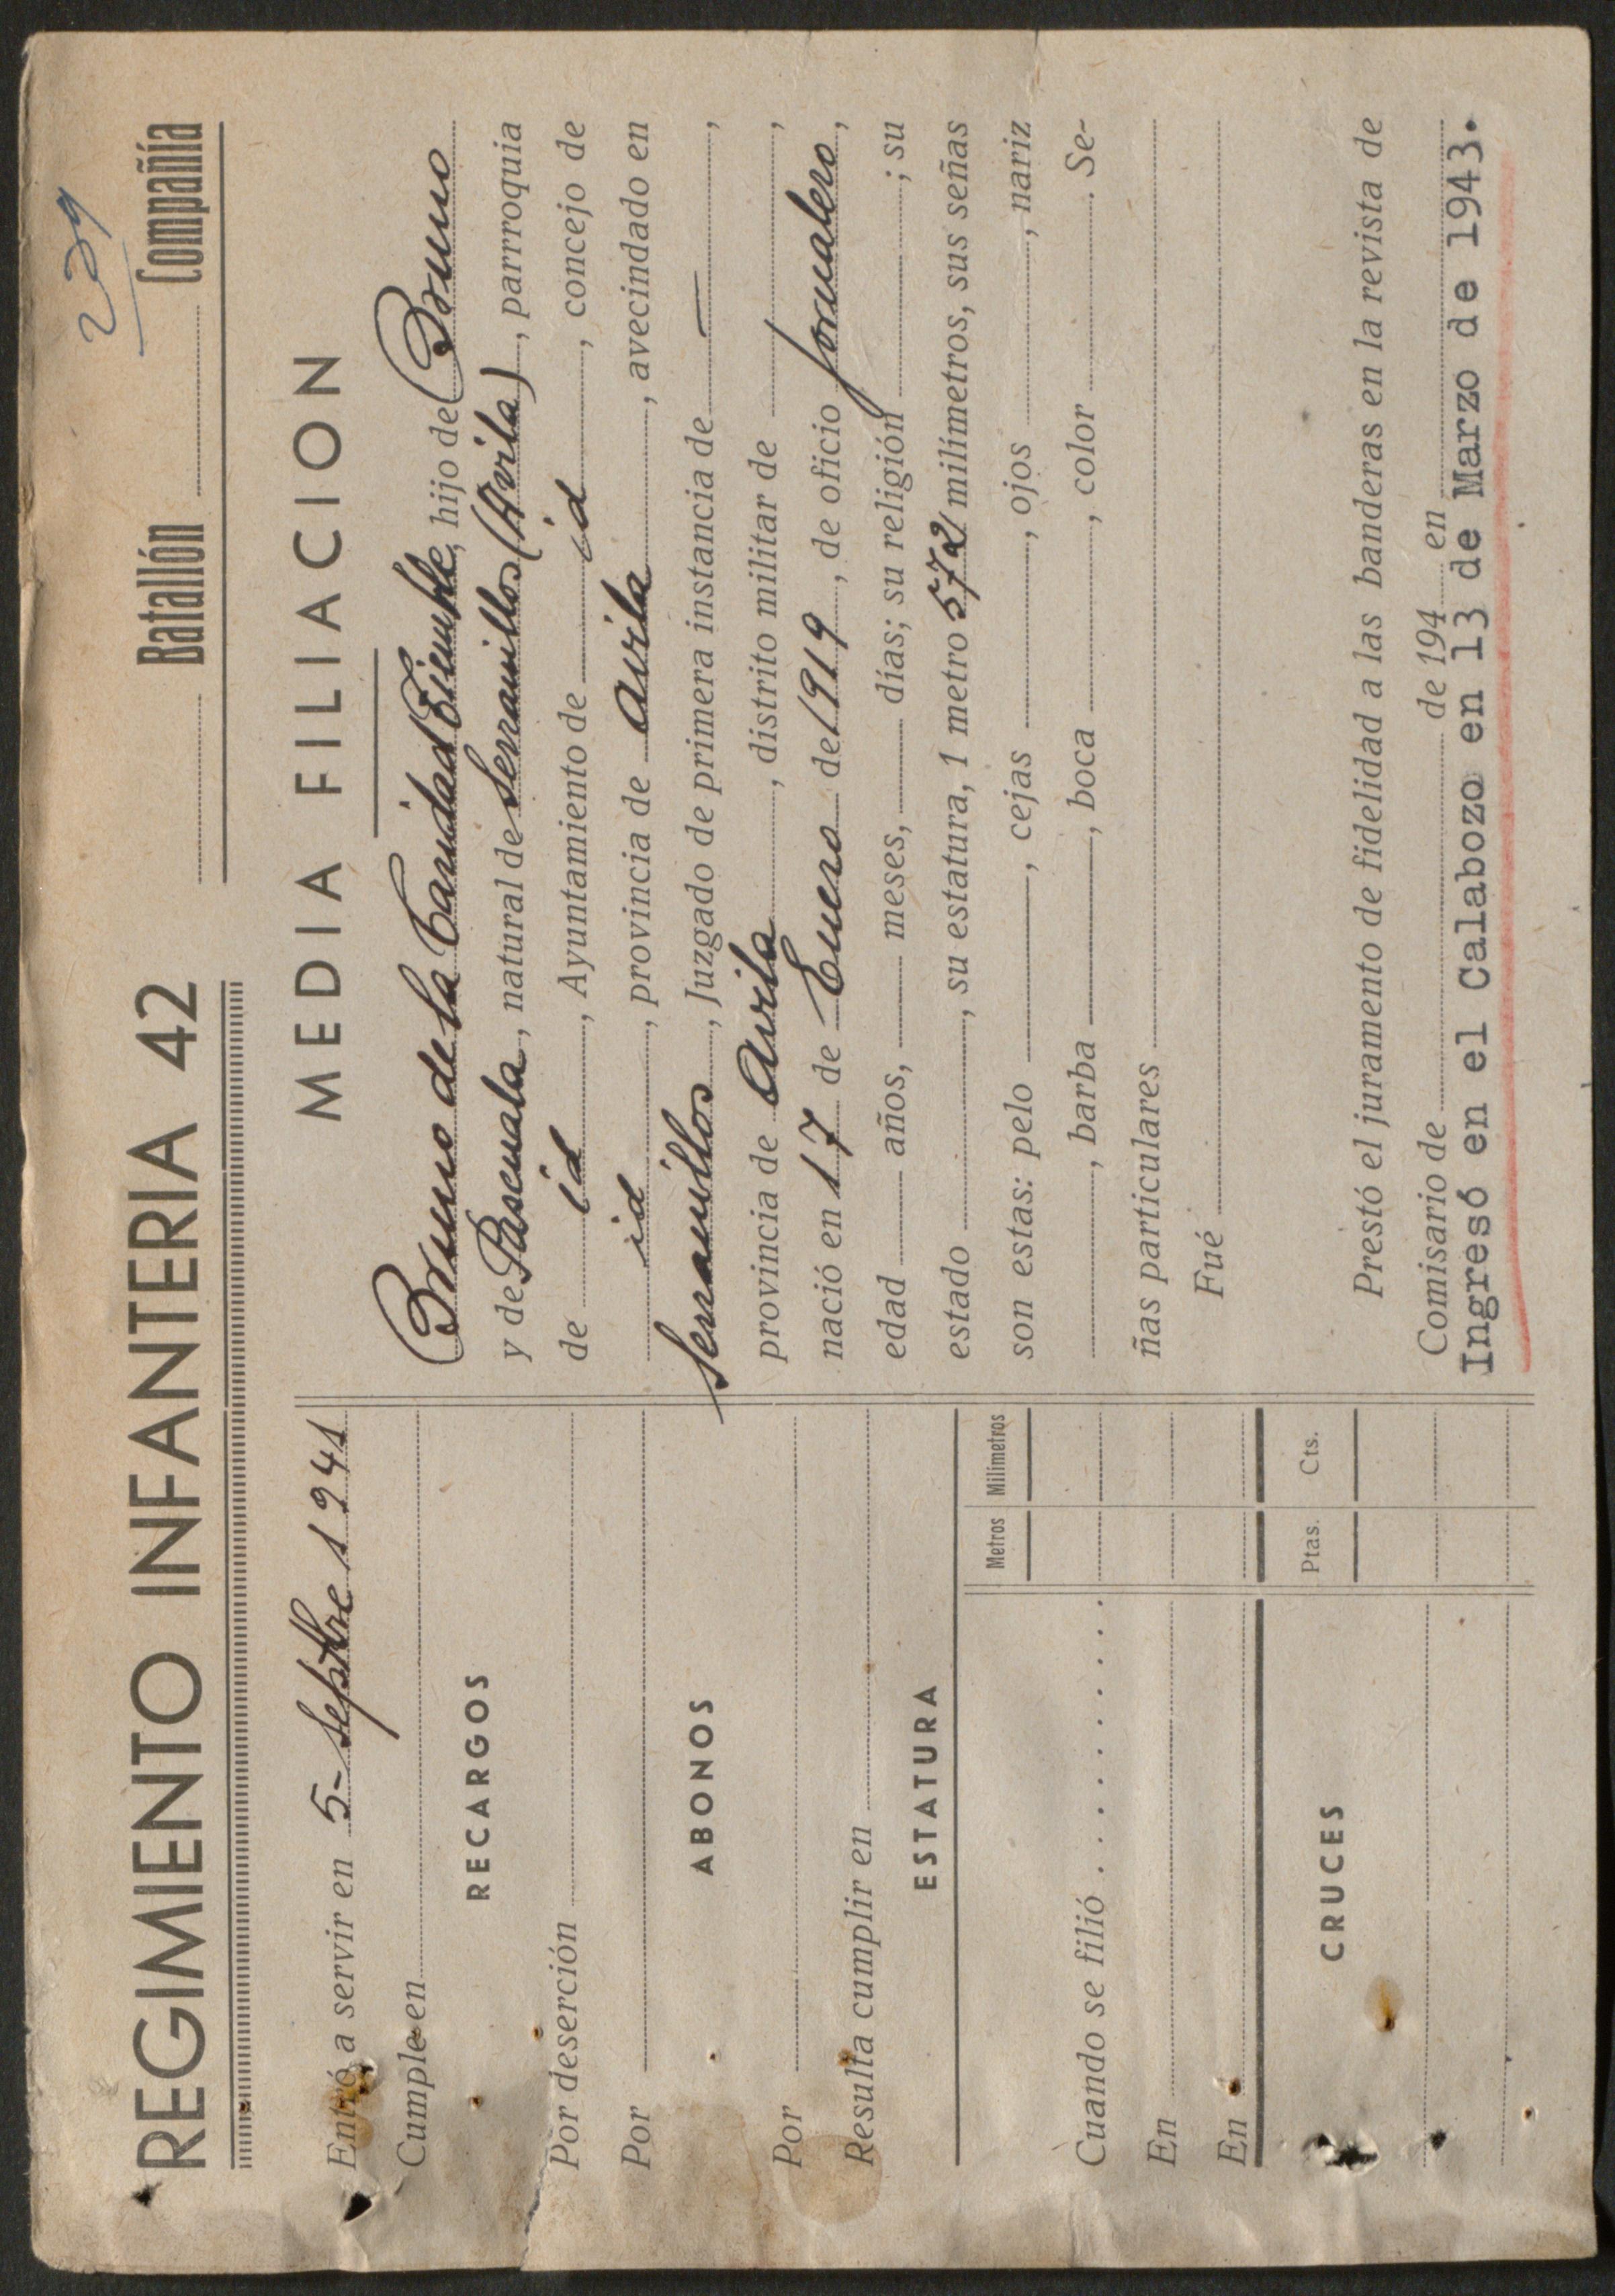 239
REGIMIENTO INFANTERIA 42 Batallón Compañía
Entró a servir en 5- Septbre 1941
Cumple en
RECARGOS
Por deserción
Por
ABONOS
Por
Resulta cumplir en
ESTATURA
Metros Milímetros
Cuando se filió
En
En
CRUCES
Ptas. Cts.
MEDIA FILIACION
Bruno de la Caridad, hijo de Bruno
y de Pascuala, natural de Serranillos (Avila), parrroquia
de id, Ayuntamiento de id, concejo de
id, provincia de Avila, avecindado en
Serranillos, Juzgado de primera instancia de —,
provincia de Avila, distrito militar de ,
nació en 17 de Enero de 1919, de oficio Jornalero,
edad años, meses, días; su religión ; su
estado , su estatura, 1 metro 572 milímetros, sus señas
son estas: pelo , cejas , ojos , nariz
, barba , boca , color . Se-
ñas particulares
Fué
Prestó el juramento de fidelidad a las banderas en la revista de
Comisario de de 194 en
Ingresó en el Calabozo en 13 de Marzo de 1943.